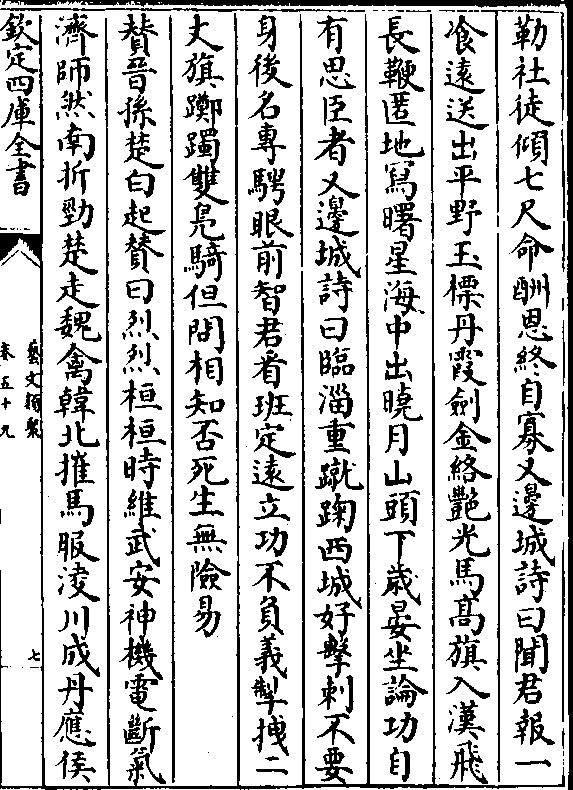 勒社徒傾七尺命酬恩終自寡又邊城詩曰聞君報一
飡遠送出平野玉標丹霞劍金絡艷光馬髙旗入漢飛
長鞭匿地寫曙星海中出曉月山頭下歲晏坐論功自
有思臣者又邊城詩曰臨淄重蹴踘西城好擊刺不要
身後名專騁眼前智君看班定遠立功不負義掣拽二
丈旗躑躅雙鳬騎但問相知否死生無險易
賛晉孫楚白起賛曰烈烈桓桓時維武安神機電斷氣
濟師然南折勁楚走魏禽韓北摧馬服凌川成丹應侯
欽定四庫全書
藝文類聚
卷五十九
七